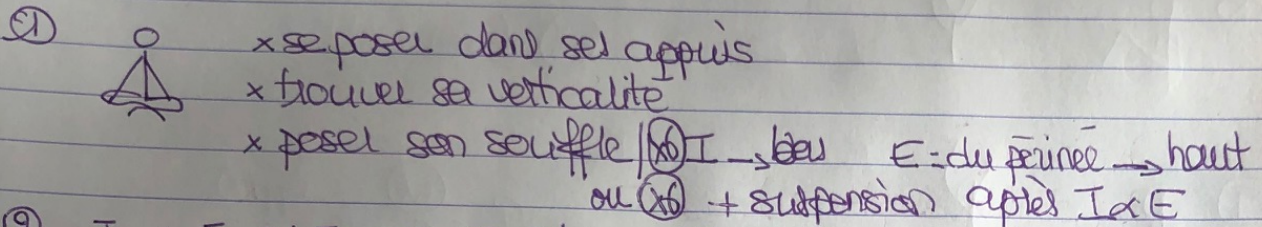 ① × se poser dans ses appuis
× trouver sa verticalité
× poser son souffle | ×6 I → bas E = du périnée → haut
ou ×6 + suspension après I & E